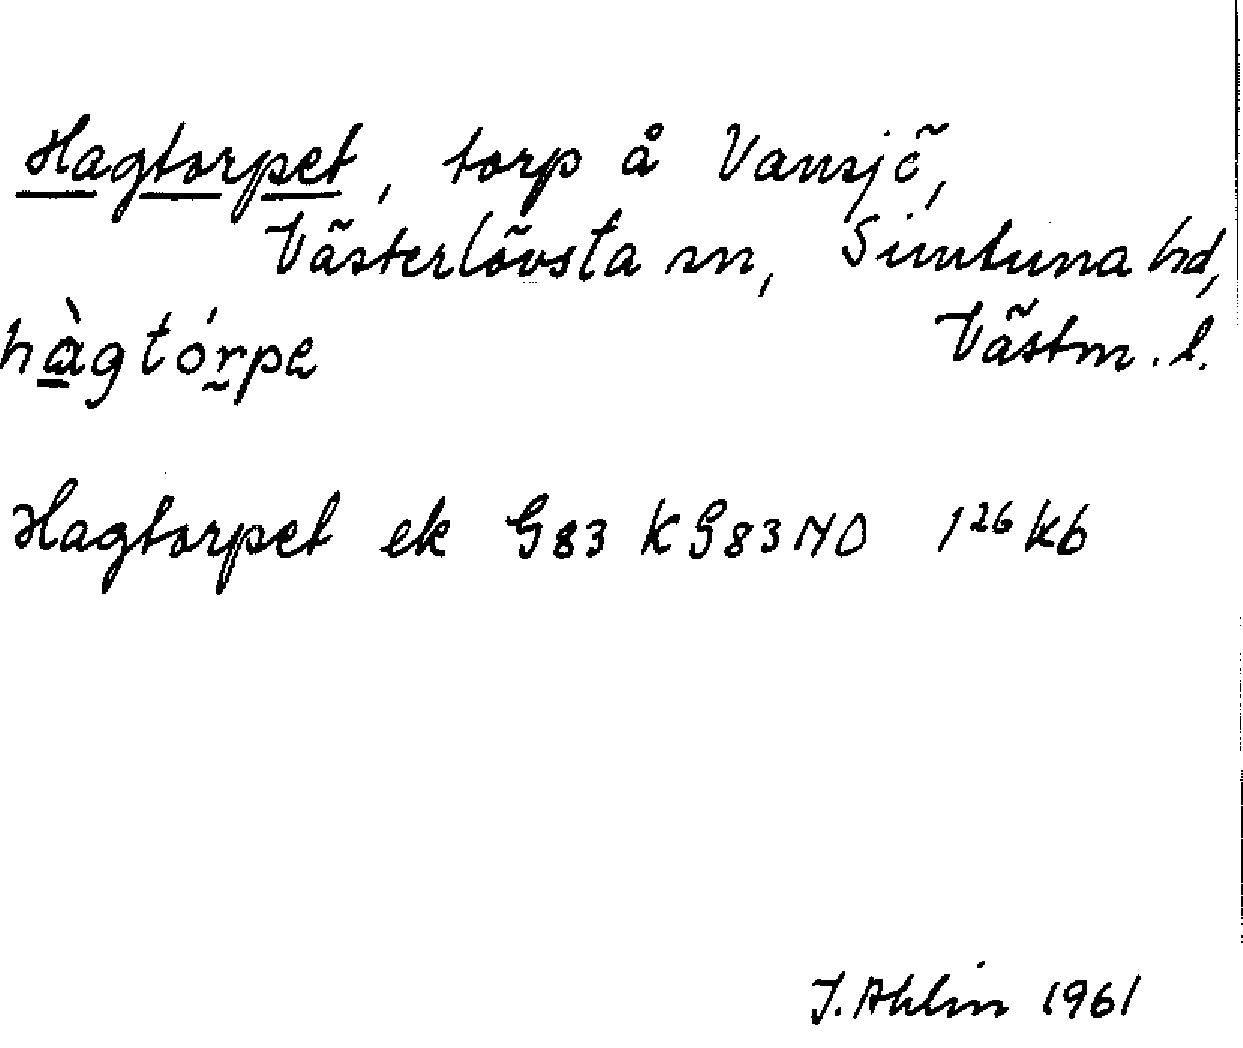 Hagtorpet, torp å Vansjö,
Västerlövsta sn, Simtuna hd,
hàgtórpe Västm. l.
Hagtorpet ek G83 KG83NO 1²⁶ Kb
J. Ahlin 1961